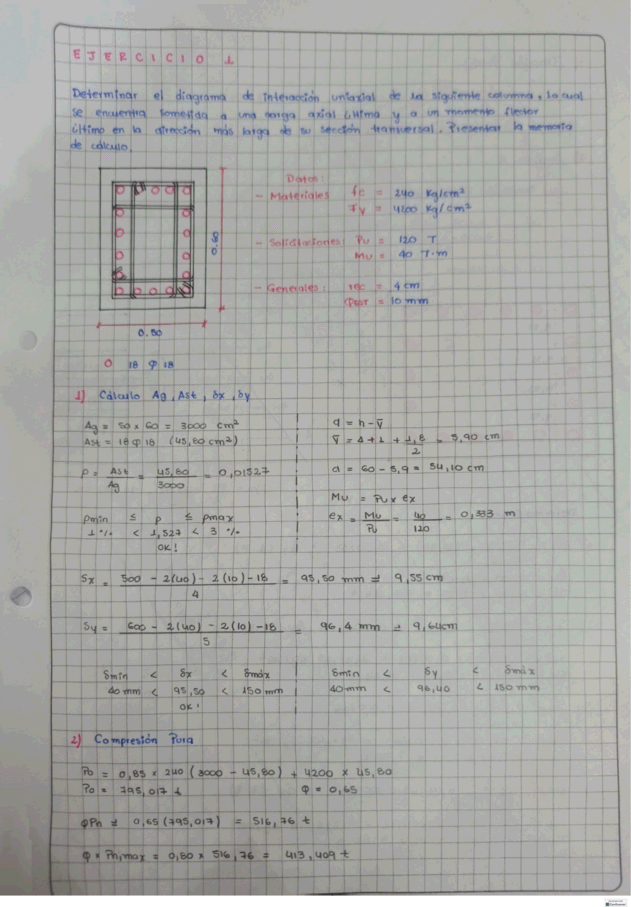 EJERCICIO 1
Determinar el diagrama de interacción uniaxial de la siguiente columna, la cual
se encuentra sometida a una carga axial última y a un momento flector
último en la dirección más larga de su sección transversal. Presentar la memoria
de cálculo.
Datos:
- Materiales f'c = 240 Kg/cm²
Fy = 4200 Kg/cm²
- Solicitaciones Pu = 120 T
Mu = 40 T·m
- Generales: rec = 4 cm
= 10 mm
0.50
O 18 φ 18
1) Cálculo Ag, Ast, δx, δy
Ag = 50 x 60 = 3000 cm²
Ast = 18 φ 18 (45,80 cm²)
ρ = Ast / Ag = 45,80 / 3000 = 0,01527
ρmin ≤ ρ ≤ ρmax
1 % < 1,527 < 3 %
OK!
d = h - v̄
v̄ = 4 + 1 + 1,8 / 2 = 5,90 cm
d = 60 - 5,9 = 54,10 cm
Mu = Pu x ex
ex = Mu / Pu = 40 / 120 = 0,333 m
Sx = 500 - 2(40) - 2(10) - 18 / 4 = 95,50 mm = 9,55 cm
Sy = 600 - 2(40) - 2(10) - 18 / 5 = 96,4 mm = 9,64cm
δmin < δx < δmáx
40 mm < 95,50 < 150 mm
OK!
δmin < δy < δmáx
40 mm < 96,40 < 150 mm
2) Compresión Pura
Po = 0,85 x 240 (3000 - 45,80) + 4200 x 45,80
Po = 795,017 t φ = 0,65
φPn = 0,65 (795,017) = 516,76 t
φ x Pn,max = 0,80 x 516,76 = 413,409 t